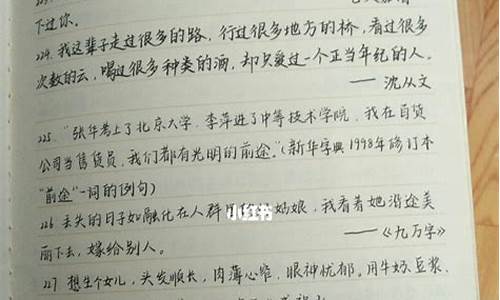 下过你。
224. 我这辈子走过很多的路，行过很多地方的桥，看过很多
次数的云，喝过很多种类的酒，却只爱过一个正当年纪的人。
——沈从文
225. "张华考上了北京大学，李萍进了中等技术学院，我在百货
公司当售货员，我们都有光明的前途。"（新华字典1998年修订本
"前途"一词的例句）
226 丢失的日子如融化在人群里的姑娘，我看着她沿途美
丽下去，嫁给别人。
——《九万字》
227 想生个女儿，头发顺长，肉薄心窄，眼神忧郁。用牛奶、豆浆、
小红书